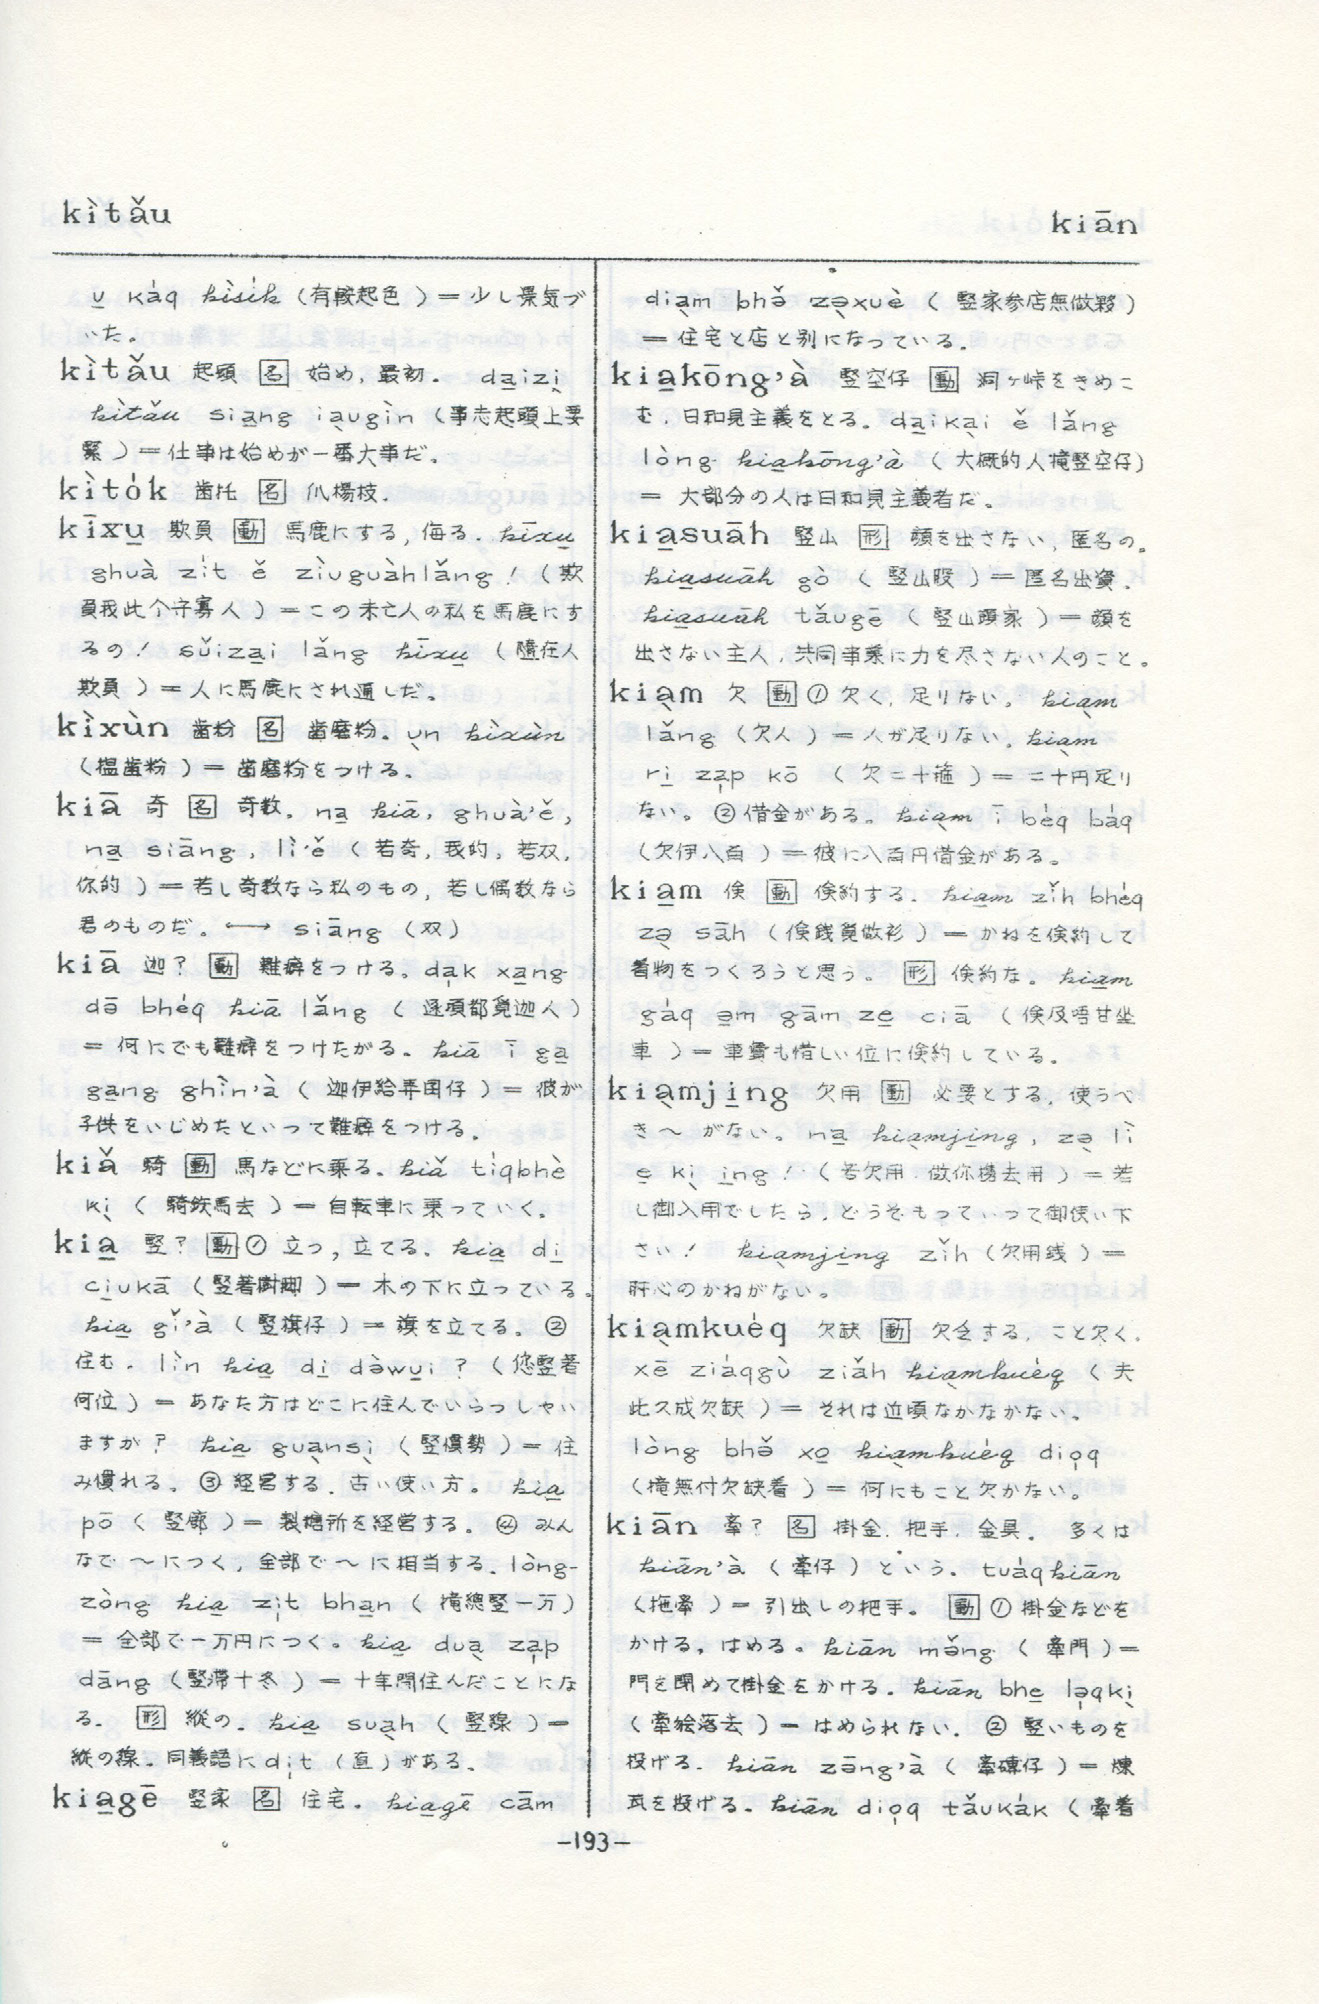 kìtǎu
kiān
u̲ káq kìsík (有較起色) = 少し景気づ
いた。
kìtǎu 起頭 名 始め, 最初. da̲izị
kìtǎu sia̲ng iạugìn (事志起頭上要
緊) = 仕事は始めが一番大事だ.
kìtók 齒托 名 爪楊枝.
kīxu̲ 欺負 動 馬鹿にする, 侮る. kīxu̲
ghuà zít ě zìuguàhlǎng! (欺
負我此个守寡人) = この未亡人の私を馬鹿にす
るの! sǔiza̲i lǎng kīxu̲ (隨在人
欺負) = 人に馬鹿にされ通しだ。
kìxùn 齒粉 名 歯磨粉. ụn kìxùn
(搵齒粉) = 歯磨粉をつける.
kiā 奇 名 奇数. na̲ kiā, ghuà'ě,
na̲ siāng, lì'ě (若奇, 我的, 若双,
你的) = 若し奇数なら私のもの, 若し偶数なら
君のものだ。 ⟷ siāng (双)
kiā 迦? 動 難癖をつける. da̲k xa̲ng
dō bhéq kiā lǎng (逐項都覓迦人)
= 何にでも難癖をつけたがる。 kiā ī ga̲
ga̲ng ghìn'à (迦伊給弄囝仔) = 彼が
子供をいじめたといって難癖をつける.
kiǎ 騎 動 馬などに乗る. kiǎ tíqbhè
kị (騎鉄馬去) = 自転車に乗っていく.
kia̲ 竪? 動 ① 立つ, 立てる. kia̲ di̲
ci̲ukā (竪著樹脚) = 木の下に立っている.
kia̲ gǐ'à (竪旗仔) = 旗を立てる. ②
住む. lìn kia̲ di̲ dòwu̲i? (您竪著
何位) = あなた方はどこに住んでいらっしゃい
ますか? kia̲ guạnsị (竪慣勢) = 住
み慣れる. ③ 経営する. 古い使い方。 kia̲
pō (竪廍) = 製糖所を経営する. ④ みん
なで〜につく, 全部で〜に相当する. lòng-
zòng kia̲ zịt bha̲n (掩總竪一万)
= 全部で一万円につく。 kia̲ duạ zạp
dāng (竪滯十冬) = 十年間住んだことにな
る. 形 縦の. kia̲ suạh (竪線) =
縦の線. 同義語に dịt (直) がある.
kia̲gē 竪家 名 住宅. kia̲gē cām
diạm bhǒ zọxuè (竪家参店無做夥)
= 住宅と店と別になっている.
kia̲kōng'à 竪空仔 動 洞ヶ峠をきめこ
む, 日和見主義をとる. da̲ikại ě lǎng
lòng kia̲kōng'à (大概的人掩竪空仔)
= 大部分の人は日和見主義者だ.
kia̲suāh 竪山 形 顔を出さない, 匿名の.
kia̲suāh gò (竪山股) = 匿名出資.
kia̲suāh tǎugē (竪山頭家) = 顔を
出さない主人, 共同事業に力を尽さない人のこと.
kiạm 欠 動 ① 欠く, 足りない. kiạm
lǎng (欠人) = 人が足りない. kiạm
ri̲ zạp kō (欠二十箍) = 二十円足り
ない。 ② 借金がある。 kiạm ī béq báq
(欠伊八百) = 彼に八百円借金がある。
kia̲m 倹 動 倹約する. kia̲m zǐh bhéq
zọ sāh (倹銭覓做衫) = かねを倹約して
着物をつくろうと思う。 形 倹約な. kia̲m
gáq a̲m gām ze̲ ciā (倹及唔甘坐
車) = 車賃も惜しい位に倹約している.
kiạmji̲ng 欠用 動 必要とする, 使うべ
き〜がない. na̲ kiạmji̲ng, zọ lì
e̲ kị i̲ng! (若欠用, 做你提去用) = 若
し御入用でしたら, どうぞもっていって御使い下
さい! kiạmji̲ng zǐh (欠用銭) =
肝心のかねがない.
kiạmkuéq 欠缺 動 欠乏する, こと欠く.
xē ziáqgù ziǎh kiạmkuéq (夫
此久成欠缺) = それは近頃なかなかない.
lòng bhǒ xo̲ kiạmkuéq diọq
(掩無付欠缺着) = 何にもこと欠かない.
kiān 牽? 名 掛金, 把手, 金具. 多くは
kiān'à (牽仔) という. tuáqkiān
(拖牽) = 引出しの把手. 動 ① 掛金などを
かける, はめる. kiān mǒng (牽門) =
門を閉めて掛金をかける. kiān bhe̲ lọqkị
(牽繪落去) = はめられない. ② 堅いものを
投げる. kiān zōng'à (牽磚仔) = 煉
瓦を投げる. kiān diọq tǎukák (牽着
—193—